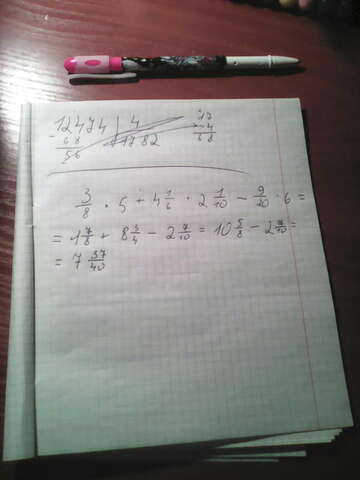 12474 | 4
- 68
56
1782
17
4
68
3/8 · 5 + 4 1/6 · 2 1/10 - 9/20 · 6 =
= 1 7/8 + 8 3/4 - 2 7/10 = 10 5/8 - 2 7/10 =
= 7 37/40